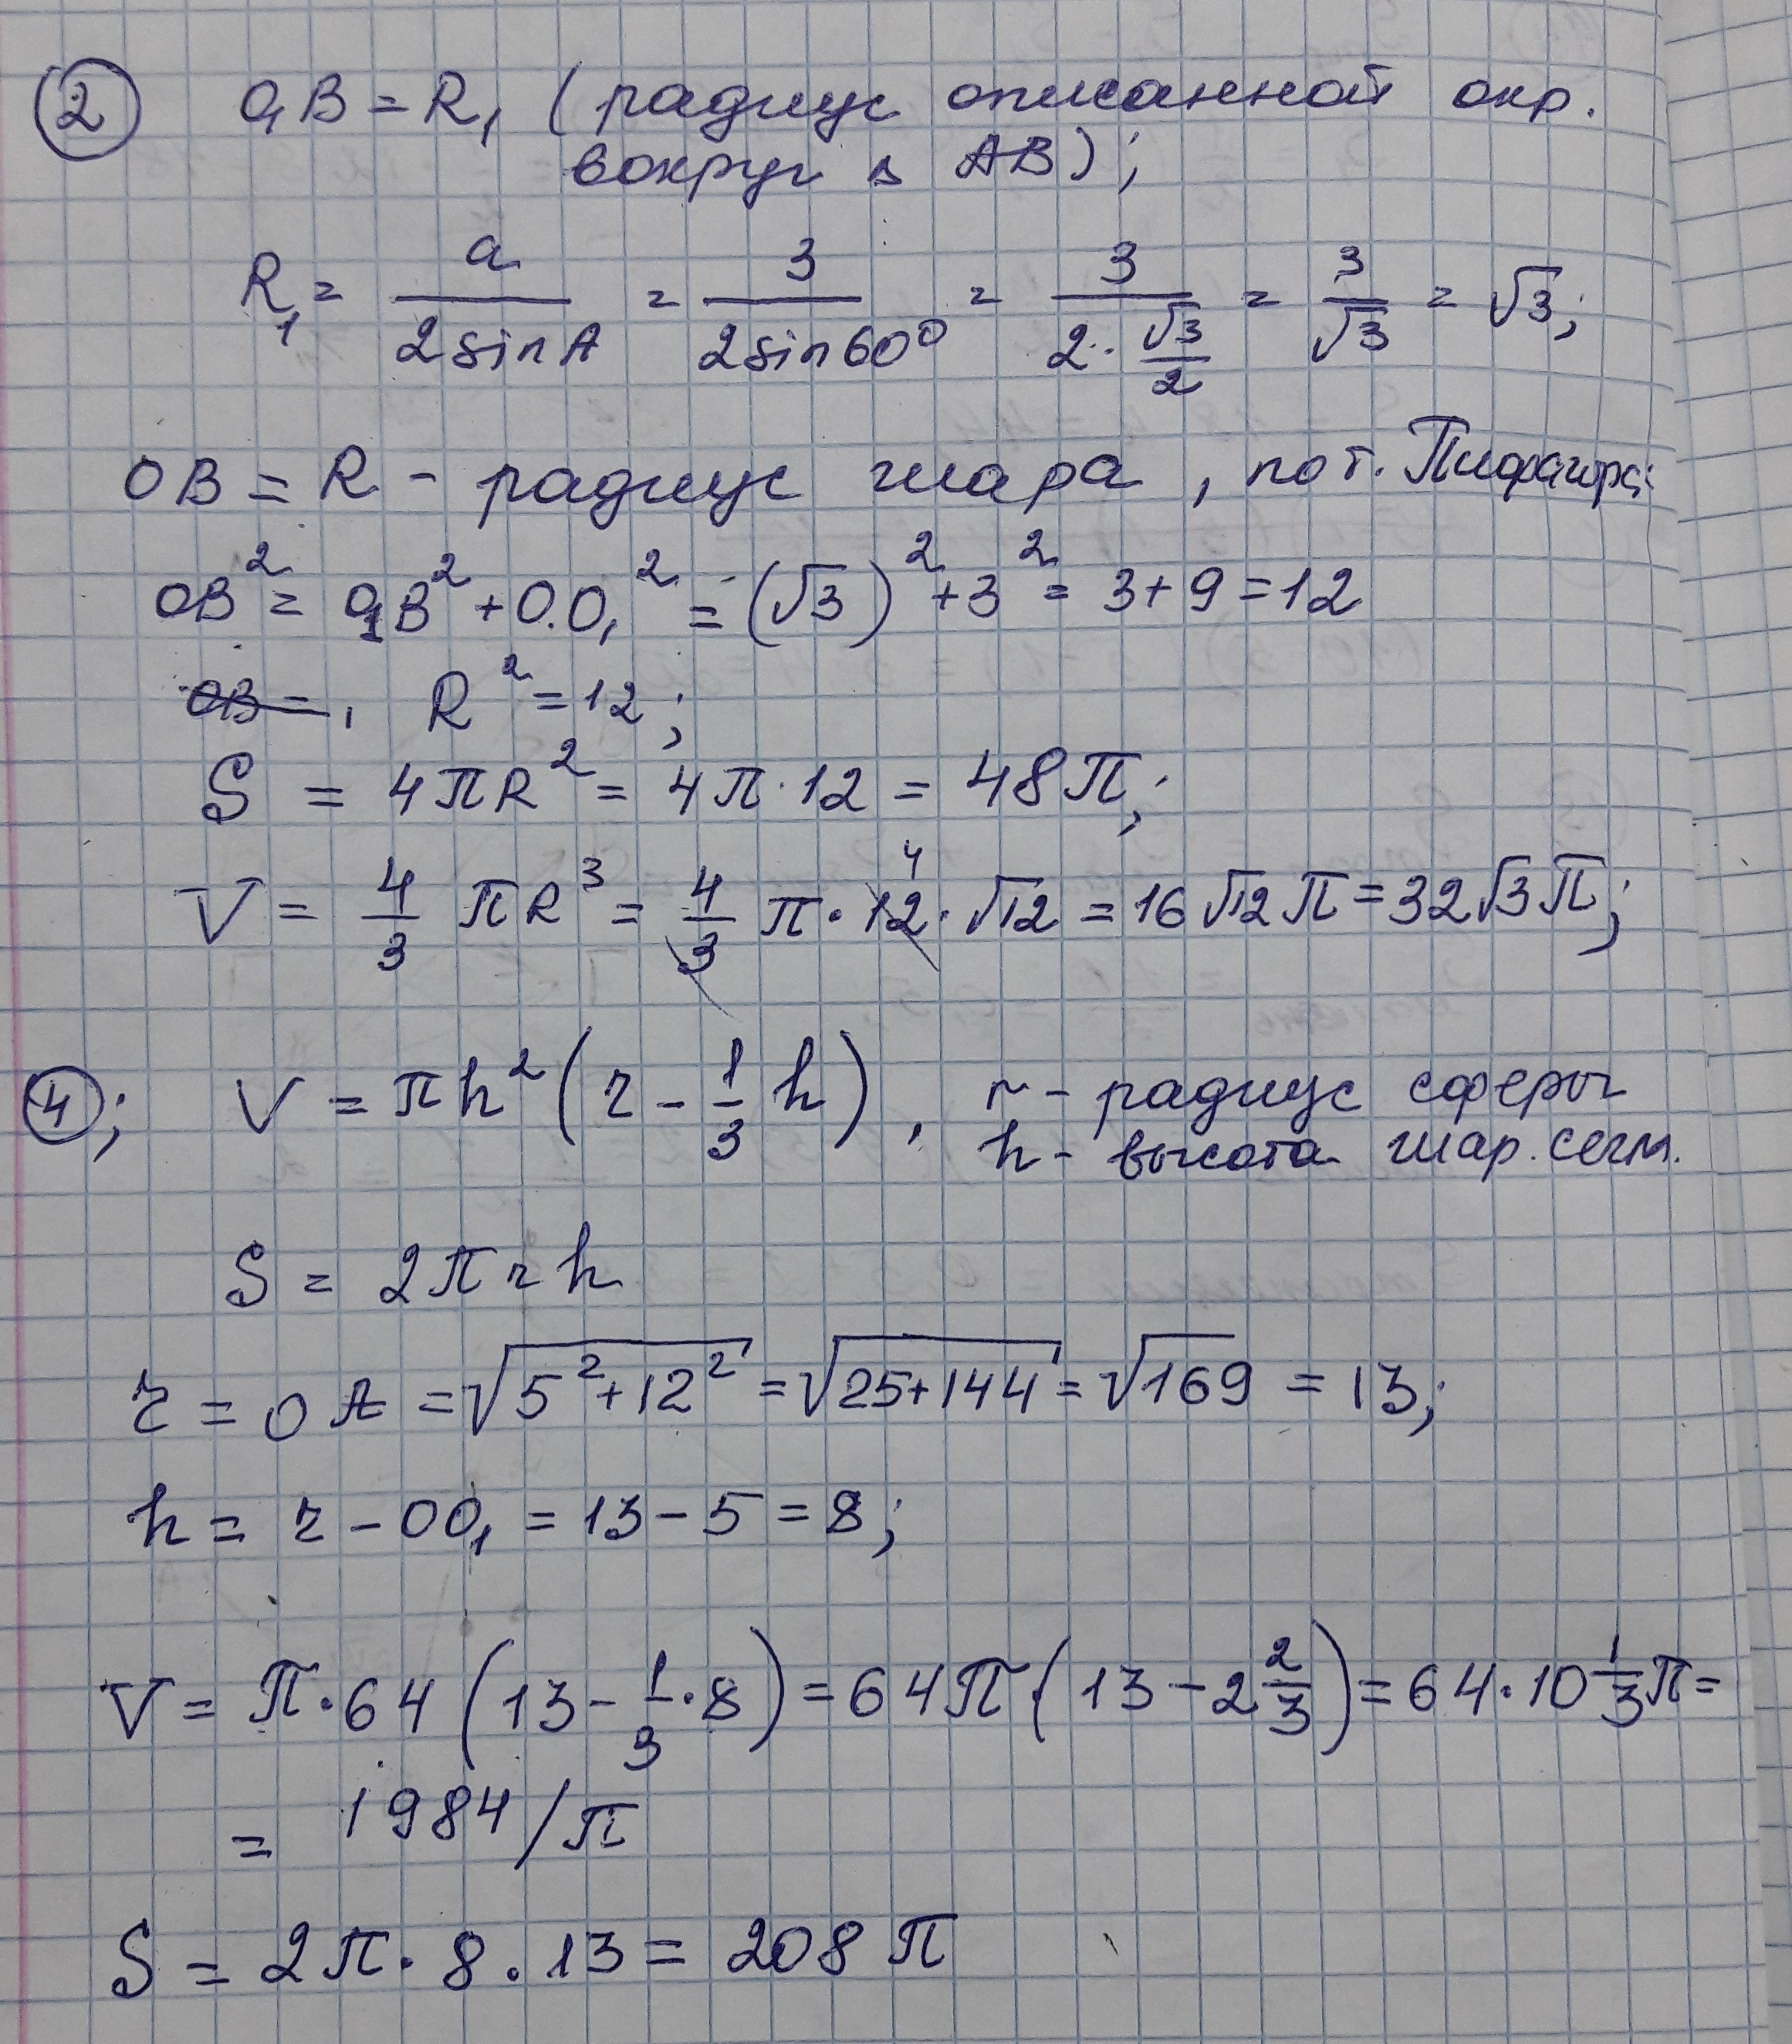 2 O₁B = R₁ (радиус описанной окр.
вокруг Δ AB);
R₁ = a/(2sinA) = 3/(2sin60°) = 3/(2·√3/2) = 3/√3 = √3;
OB = R - радиус шара, по т. Пифагора:
OB² = O₁B² + O.O₁² = (√3)² + 3² = 3 + 9 = 12
OB =, R² = 12;
S = 4πR² = 4π·12 = 48π;
V = 4/3 πR³ = 4/3 π·12⁴·√12 = 16√12π = 32√3π;
4; V = πh²(r - 1/3 h), r - радиус сферы
h - высота шар. сегм.
S = 2πrh
r = OA = √(5²+12²) = √(25+144) = √169 = 13;
h = r - OO₁ = 13 - 5 = 8;
V = π·64(13 - 1/3·8) = 64π·(13 - 2 2/3) = 64·10 1/3 π =
= 1984/π
S = 2π·8·13 = 208π